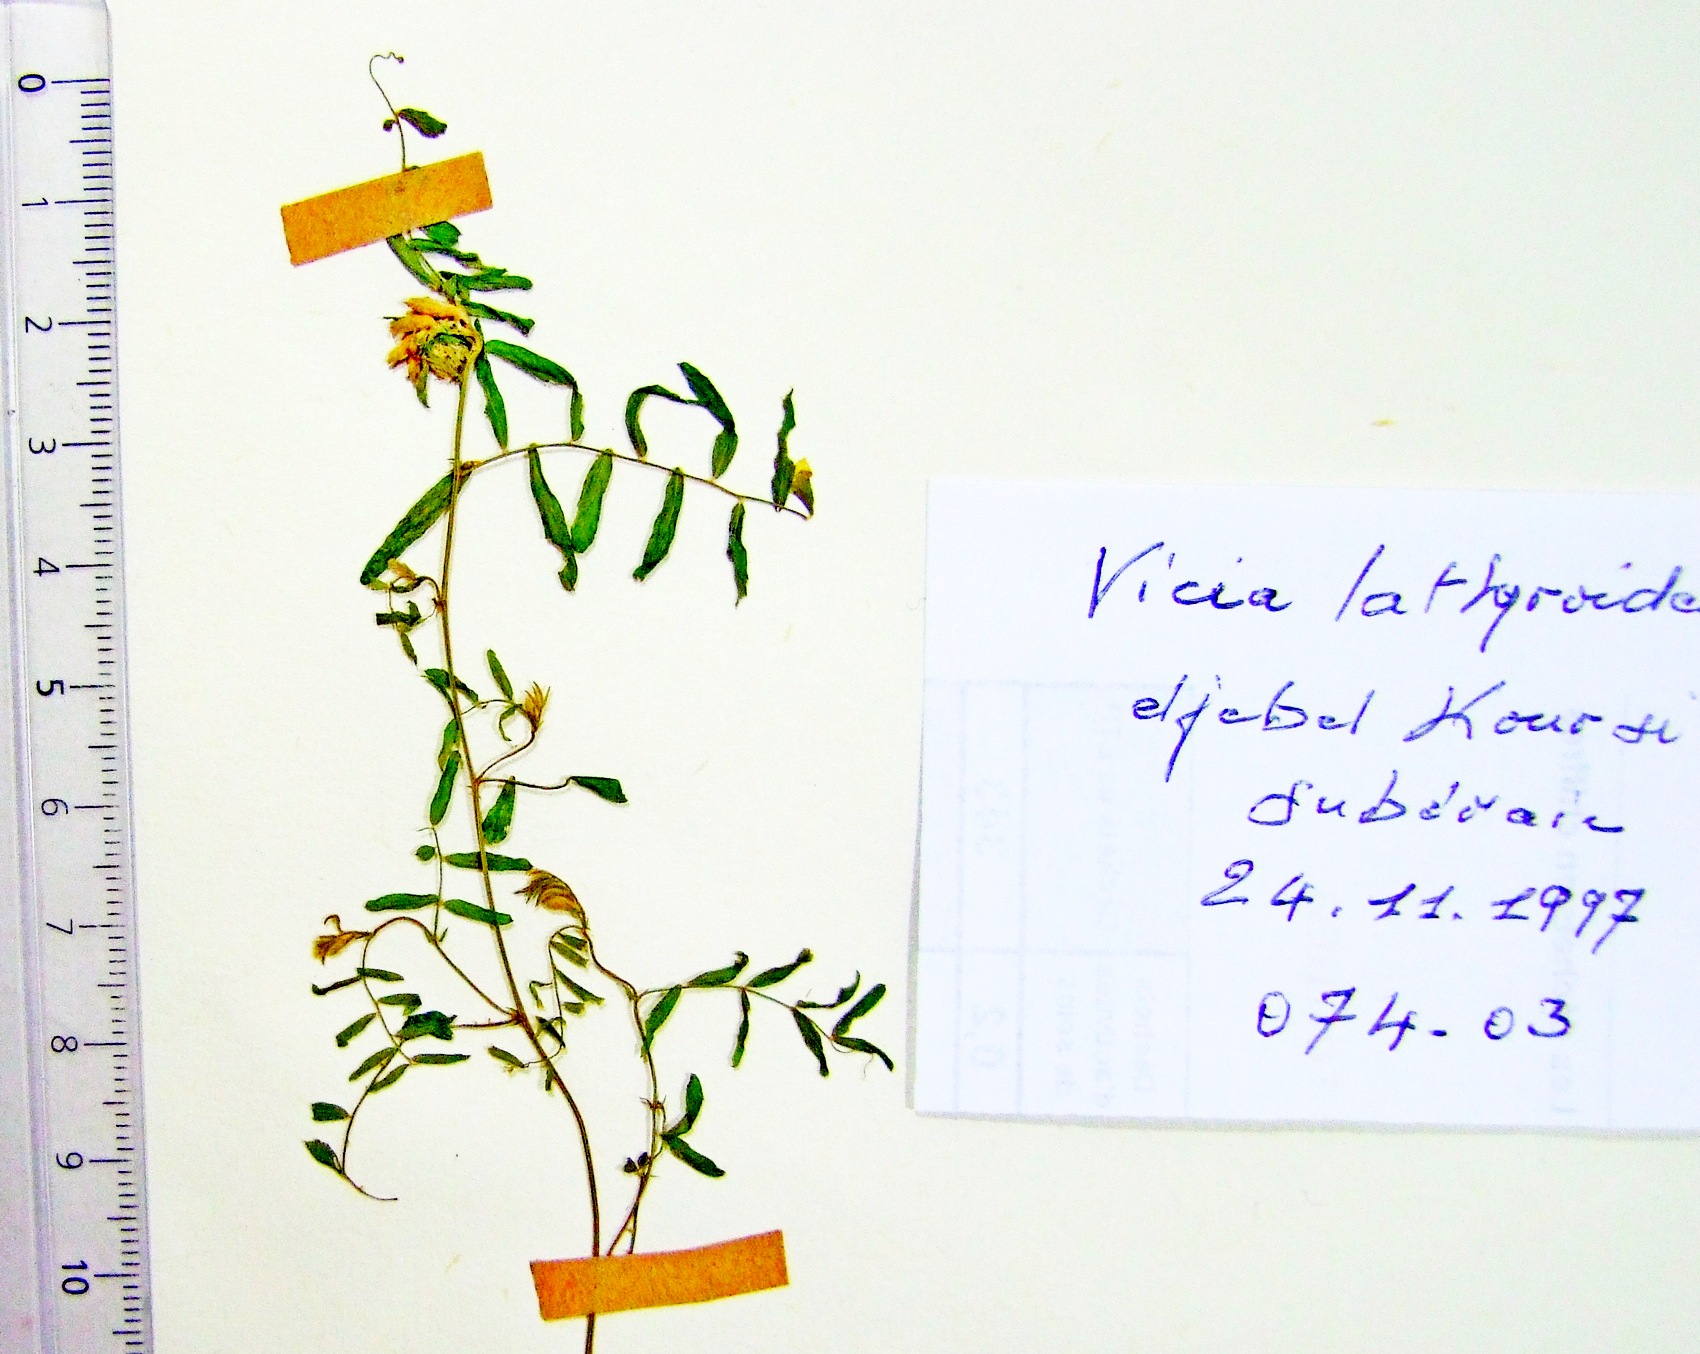 0
1
2
3
4
5
6
7
8
9
10
Vicia lathyroide
djebel Koursi
24.11.1997
074-03